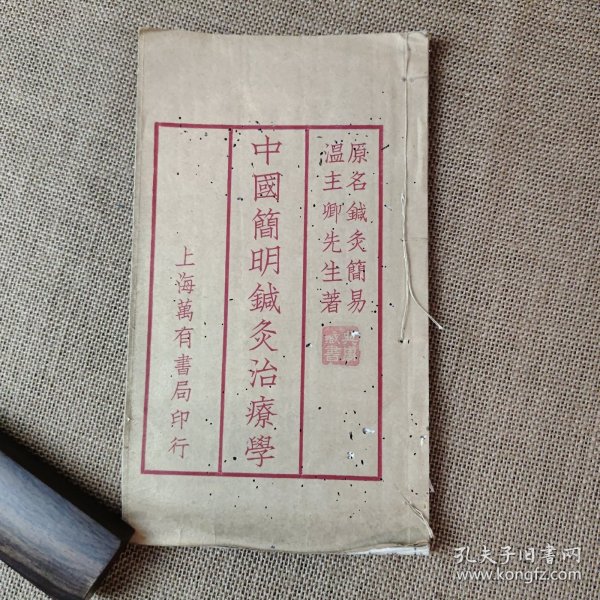 原名鍼灸簡易
溫主卿先生著
中國簡明鍼灸治療學
上海萬有書局印行
孔夫子旧書网
www.kongfz.com